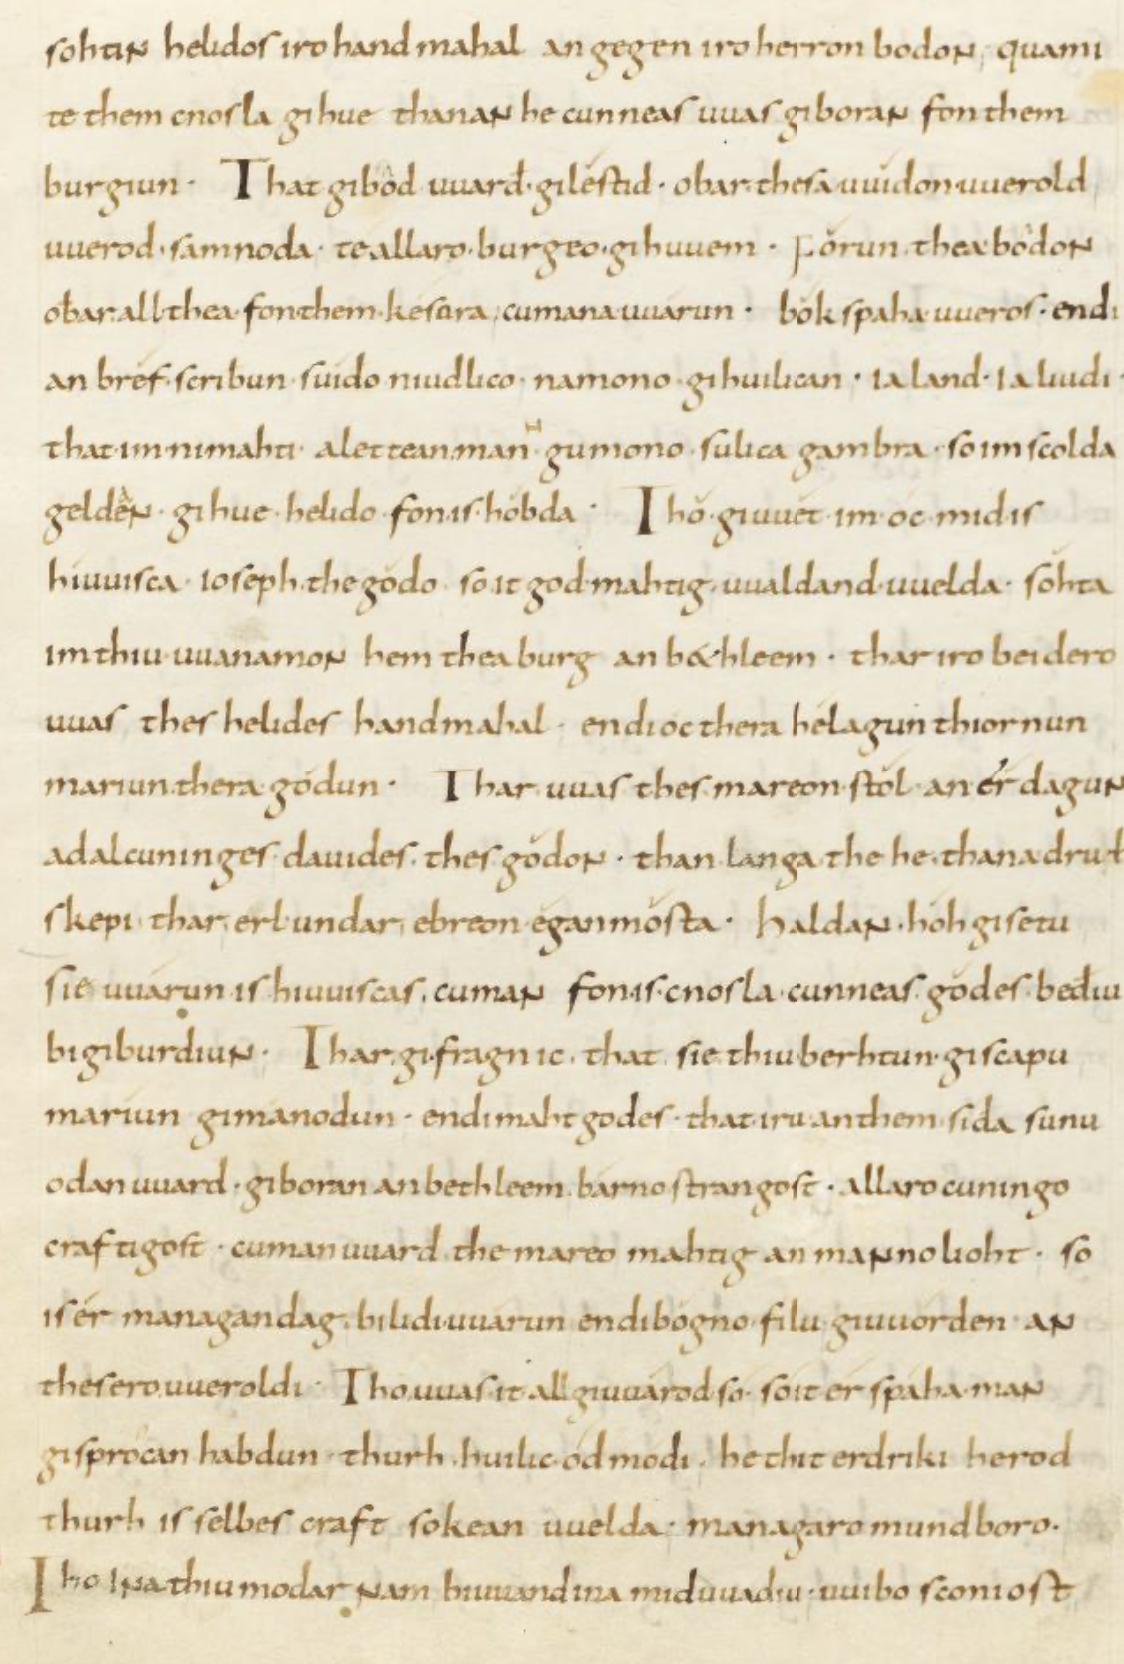 sohtin helidos iro handmahal angegen iro herron bodon, quami
te them cnosla gihue thanan he cunneas uuas giboran fon them
burgiun · That gibod uuarđ · gilestid · obar · thesa uuidon · uuerold
uuerod · samnoda · te allaro · burgeo · gihuuem · Fórun · thea bodon
oƀar · all · thea · fon them · késura · cumana · uuarun · bók spaha · uueros · endi
an bréf · scribun · suiđo niudlico · namono · gihuilican · ia land · ia liudi ·
that · im · ni mahti · alettean · mann · gumono · sulica gambra · so im scolda
geldén · gihue · helido · fon · is · hobda · Thó · giuuét · im · oc · mid is
hiuuisca · ioseph · the gódo · so it god · mahtig · uualdand · uuelda · sóhta
im thiu · uuanamon hem thea burg an b&hleem · thar iro beidero
uuas thes helides handmahal · endi oc thera hélagun thiornun
mariun · thera gódun · Thar uuas thes mareon · stól · an ér dagun
adalcuninges · dauides · thes gódon · than · langa the he · thana druht
skepi · thar · erl · undar · ebreon · égan mósta · haldan · hóh gisetu
sie uuarun is hiuuiscas · cuman fon · is · cnosla · cunneas · gódes · beđiu
bi giburdiun · Thar · gi · fragn ic · that sie thiu berhtun · giscapu
mariun gimanodun · endi maht godes · that · iru · an them siđa sunu
odan uuard · giboran an bethleem · barno strangost · allaro cuningo
craftigost · cuman uuard the mareo mahtig an manno lioht · so
is ér managan dag · bilidi · uuarun endi bógno · filu · giuuórden · an
thesero · uueroldi · Tho · uuas · it all giuuárod so · só it ér spáha · man
gisprócan habdun · thurh · huilic · ódmodi · he thit erdriki herod
thurh is selbes craft sokean uuelda · managaro mundboro ·
Tho ina · thiu modar nam biuuand ina mid uuadiu · uuibo sconiost